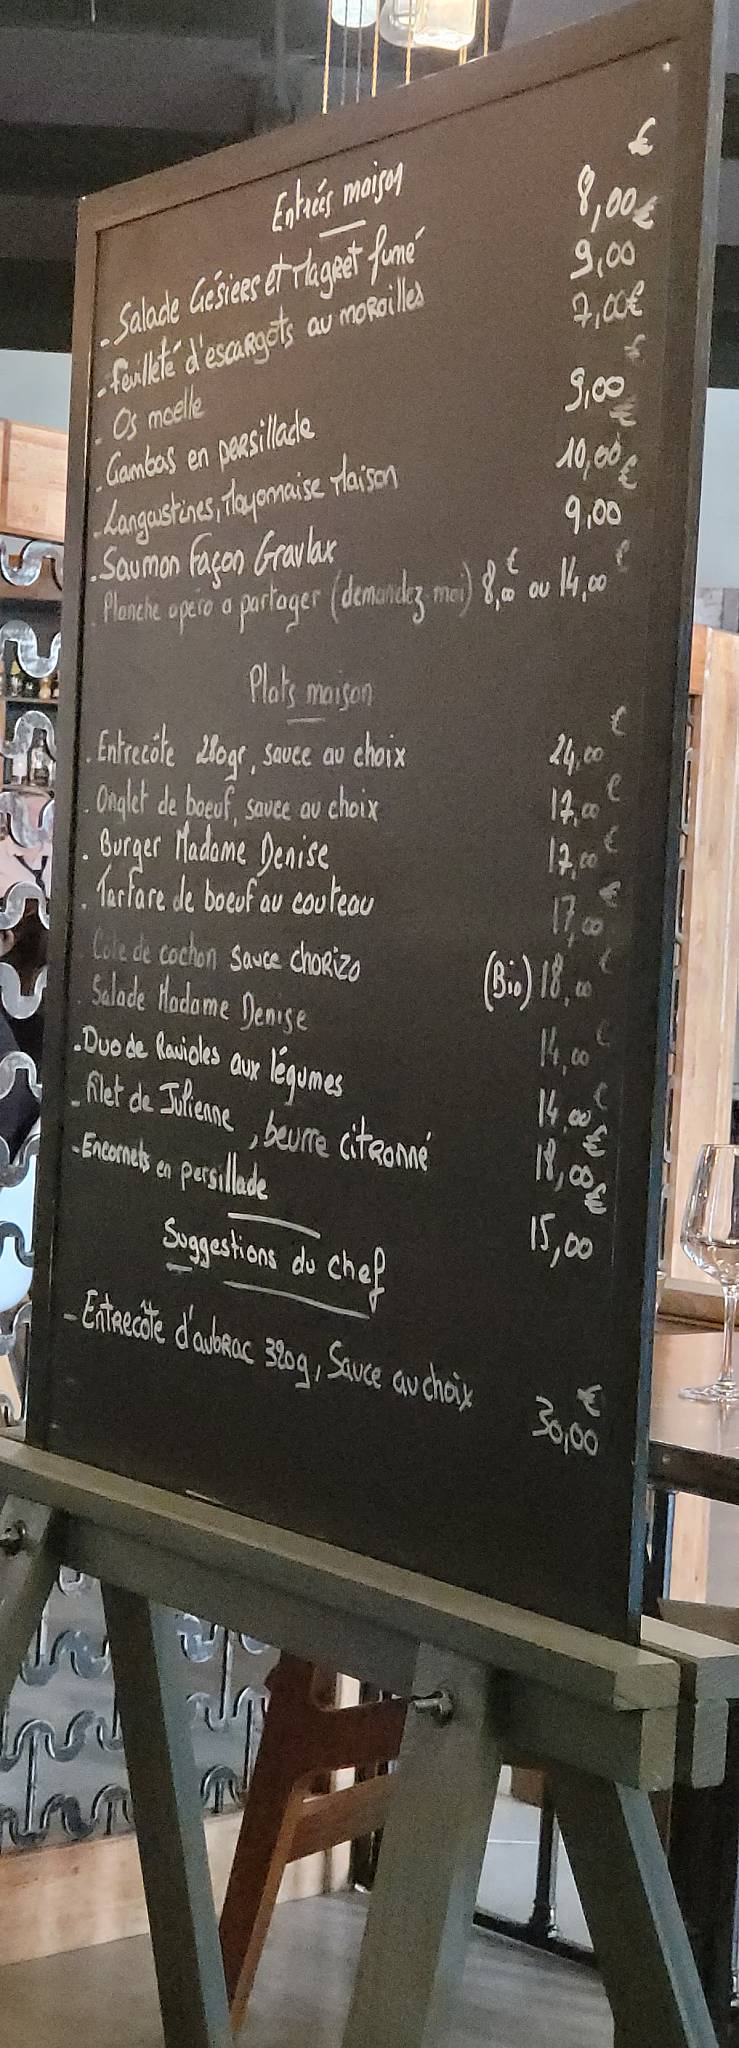 Entrées maison
- Salade Gésiers et Magret fumé 8,00 €
- feuilleté d'escargots au maroilles 9,00 €
- Os moelle 7,00 €
- Gambas en persillade 9,00 €
- Langoustines, Mayonnaise Maison 10,00 €
- Saumon façon Gravlax 9,00 €
- Planche apéro a partager (demandez moi) 8,00 € ou 14,00 €
Plats maison
- Entrecôte 280gr, sauce au choix 24,00 €
- Onglet de boeuf, sauce au choix 17,00 €
- Burger Madame Denise 17,00 €
- Tartare de boeuf au couteau 17,00 €
Cote de cochon sauce chorizo (Bio) 18,00 €
- Salade Madame Denise 14,00 €
- Duo de Ravioles aux légumes 14,00 €
- filet de Julienne, beurre citronné 18,00 €
- Encornets en persillade 15,00 €
Suggestions du chef
- Entrecôte d'aubrac 320g, Sauce au choix 30,00 €